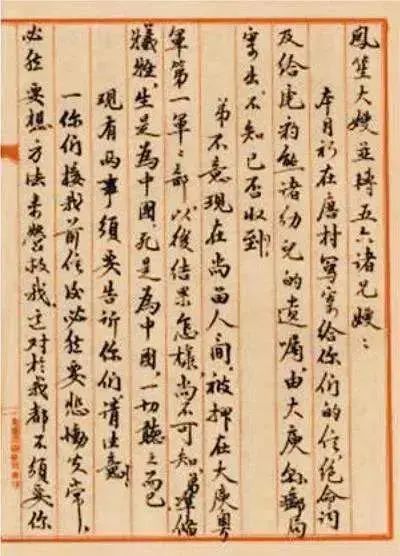 鳳笙大嫂並轉五六諸兄嫂:
本月初在唐村寫寄給你们的信、絕命詞
及给虎豹熊諸幼兒的遺嘱,由大庾縣郵局
寄出,不知已否收到?
弟不意現在尚留人間,被押在大庾粤
軍第一軍々部,以後结果怎樣,尚不可知,弟準備
犧牲,生是為中國,死是為中國,一切聽之而已
現有兩事須要告訴你们,請注意!
一你们接我前信後必然要悲慟失常,
必然要想方法来營救我,这對於我都不须要你